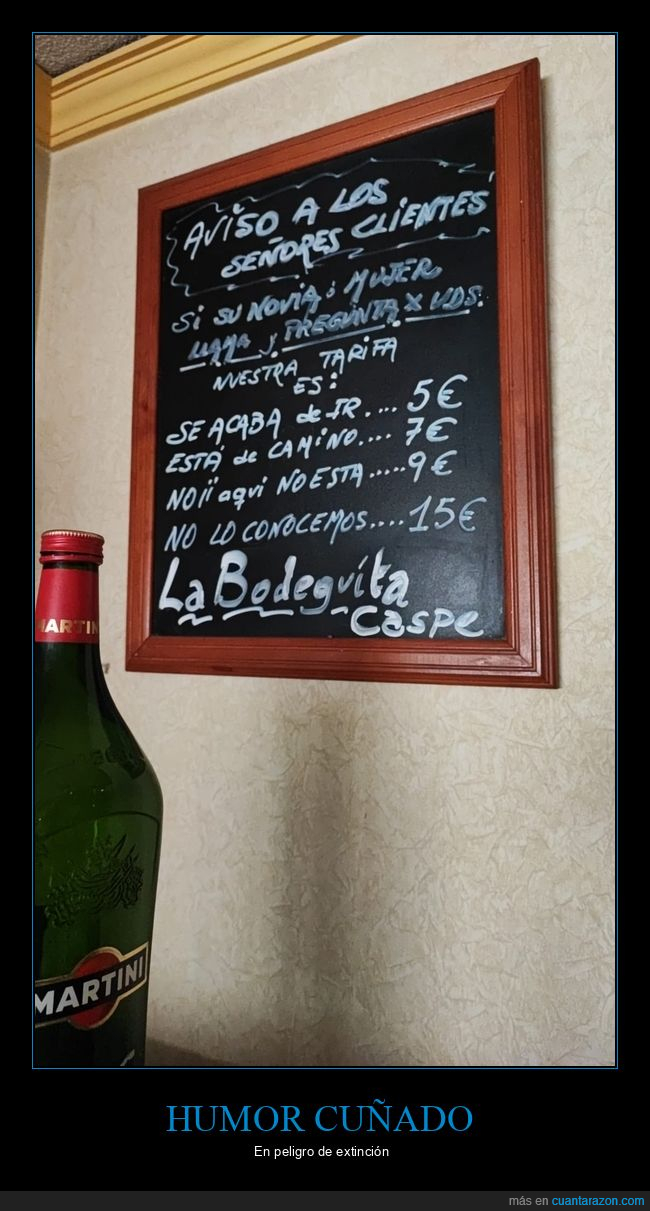 AVISO A LOS
SEÑORES CLIENTES
Si SU NOViA ó MUJER
LLAMA y PREGUNTA X UDS.
NUESTRA TARIFA
ES:
SE ACABA de IR.... 5€
ESTÁ de CAMiNO.... 7€
NO¡¡ aqui NO ESTA.....9€
NO LO CONOCEMOS....15€
La Bodeguíta
Caspe
MARTINI
MARTINI
HUMOR CUÑADO
En peligro de extinción
más en cuantarazon.com